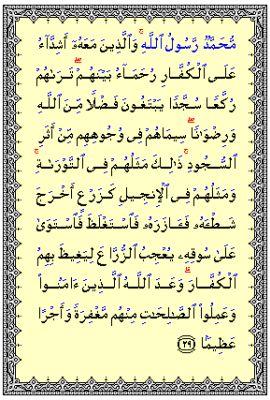 مُّحَمَّدٌ رَّسُولُ ٱللَّهِ ۚ وَٱلَّذِينَ مَعَهُۥٓ أَشِدَّآءُ
عَلَى ٱلْكُفَّارِ رُحَمَآءُ بَيْنَهُمْ ۖ تَرَىٰهُمْ
رُكَّعًا سُجَّدًا يَبْتَغُونَ فَضْلًا مِّنَ ٱللَّهِ
وَرِضْوَٰنًا ۖ سِيمَاهُمْ فِى وُجُوهِهِم مِّنْ أَثَرِ
ٱلسُّجُودِ ۚ ذَٰلِكَ مَثَلُهُمْ فِى ٱلتَّوْرَىٰةِ ۚ
وَمَثَلُهُمْ فِى ٱلْإِنجِيلِ كَزَرْعٍ أَخْرَجَ
شَطْـَٔهُۥ فَـَٔازَرَهُۥ فَٱسْتَغْلَظَ فَٱسْتَوَىٰ
عَلَىٰ سُوقِهِۦ يُعْجِبُ ٱلزُّرَّاعَ لِيَغِيظَ بِهِمُ
ٱلْكُفَّارَ ۗ وَعَدَ ٱللَّهُ ٱلَّذِينَ ءَامَنُوا۟
وَعَمِلُوا۟ ٱلصَّـٰلِحَـٰتِ مِنْهُم مَّغْفِرَةً وَأَجْرًا
عَظِيمًۢا ﴿٢٩﴾